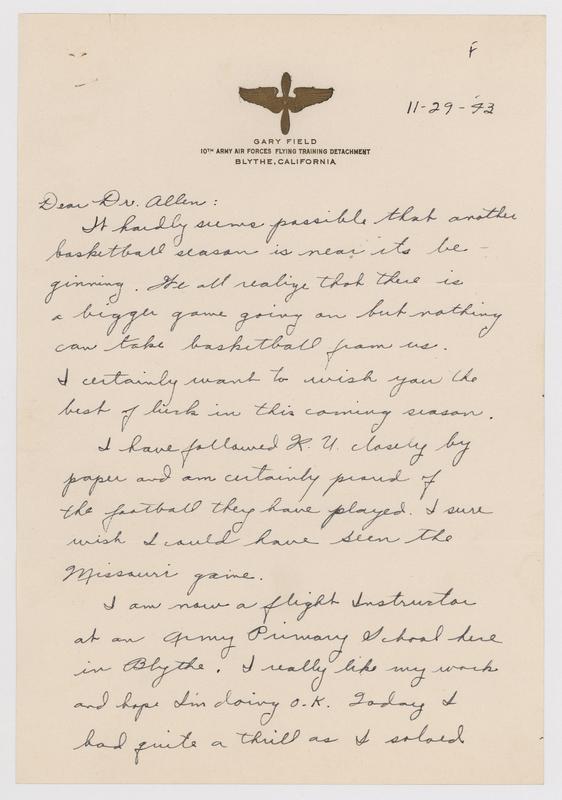 F
11-29-43
GARY FIELD
10TH ARMY AIR FORCES FLYING TRAINING DETACHMENT
BLYTHE, CALIFORNIA
Dear Dr. Allen:
It hardly seems possible that another
basketball season is near its be-
ginning. We all realize that there is
a bigger game going on but nothing
can take basketball from us.
I certainly want to wish you the
best of luck in this coming season.
I have followed K. U. closely by
paper and am certainly proud of
the football they have played. I sure
wish I could have seen the
Missouri game.
I am now a flight Instructor
at an Army Primary School here
in Blythe. I really like my work
and hope I'm doing O.K. Today I
had quite a thrill as I soloed